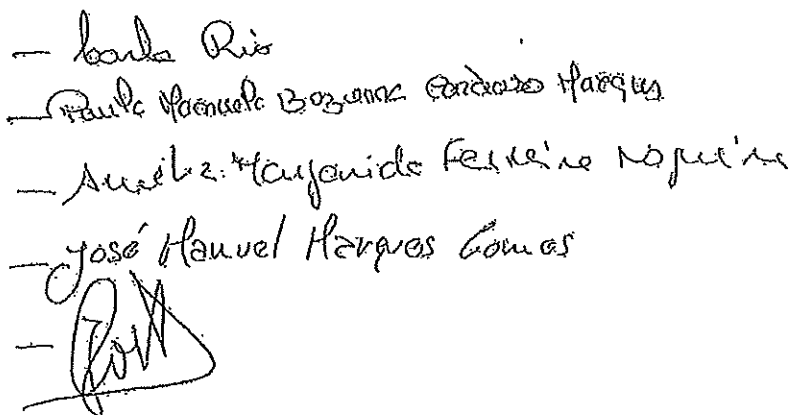 — Carla Rio
— Paula Manuela Bezerra Cardoso Marques
— Amélia Margarida Ferreira Nogueira
— José Manuel Marques Gomes
—